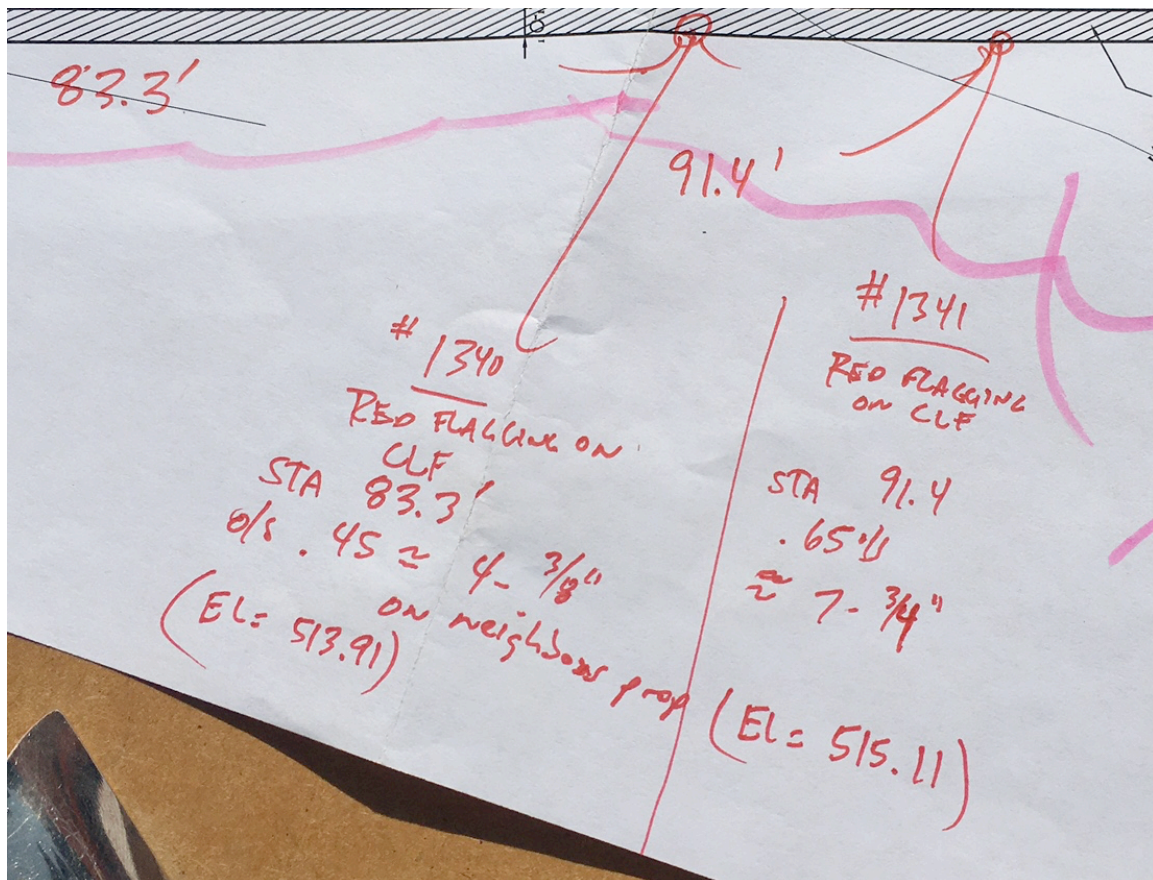 83.3'
91.4'
#
1340
RED FLAGGING ON
CLF
STA 83.3'
o/s .45 ≈ 4-3/8"
on neighbors prop
(EL= 513.91)
#1341
RED FLAGGING
ON CLF
STA 91.4
.65
≈ 7-3/4"
(EL= 515.11)